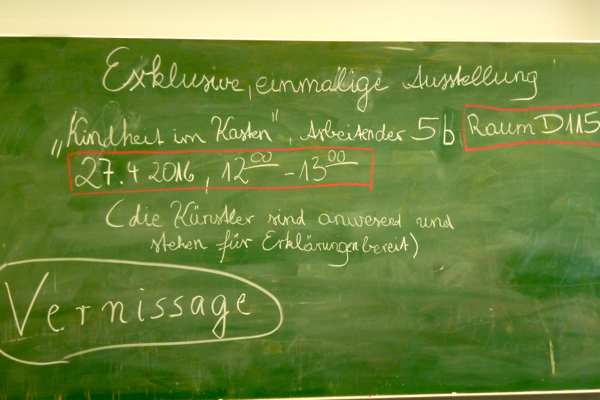 Exklusive, einmalige Ausstellung
„Kindheit im Kasten", Arbeiten der 5b Raum D115
27.4.2016, 12⁰⁰ - 13⁰⁰
(die Künstler sind anwesend und
stehen für Erklärungen bereit)
Vernissage